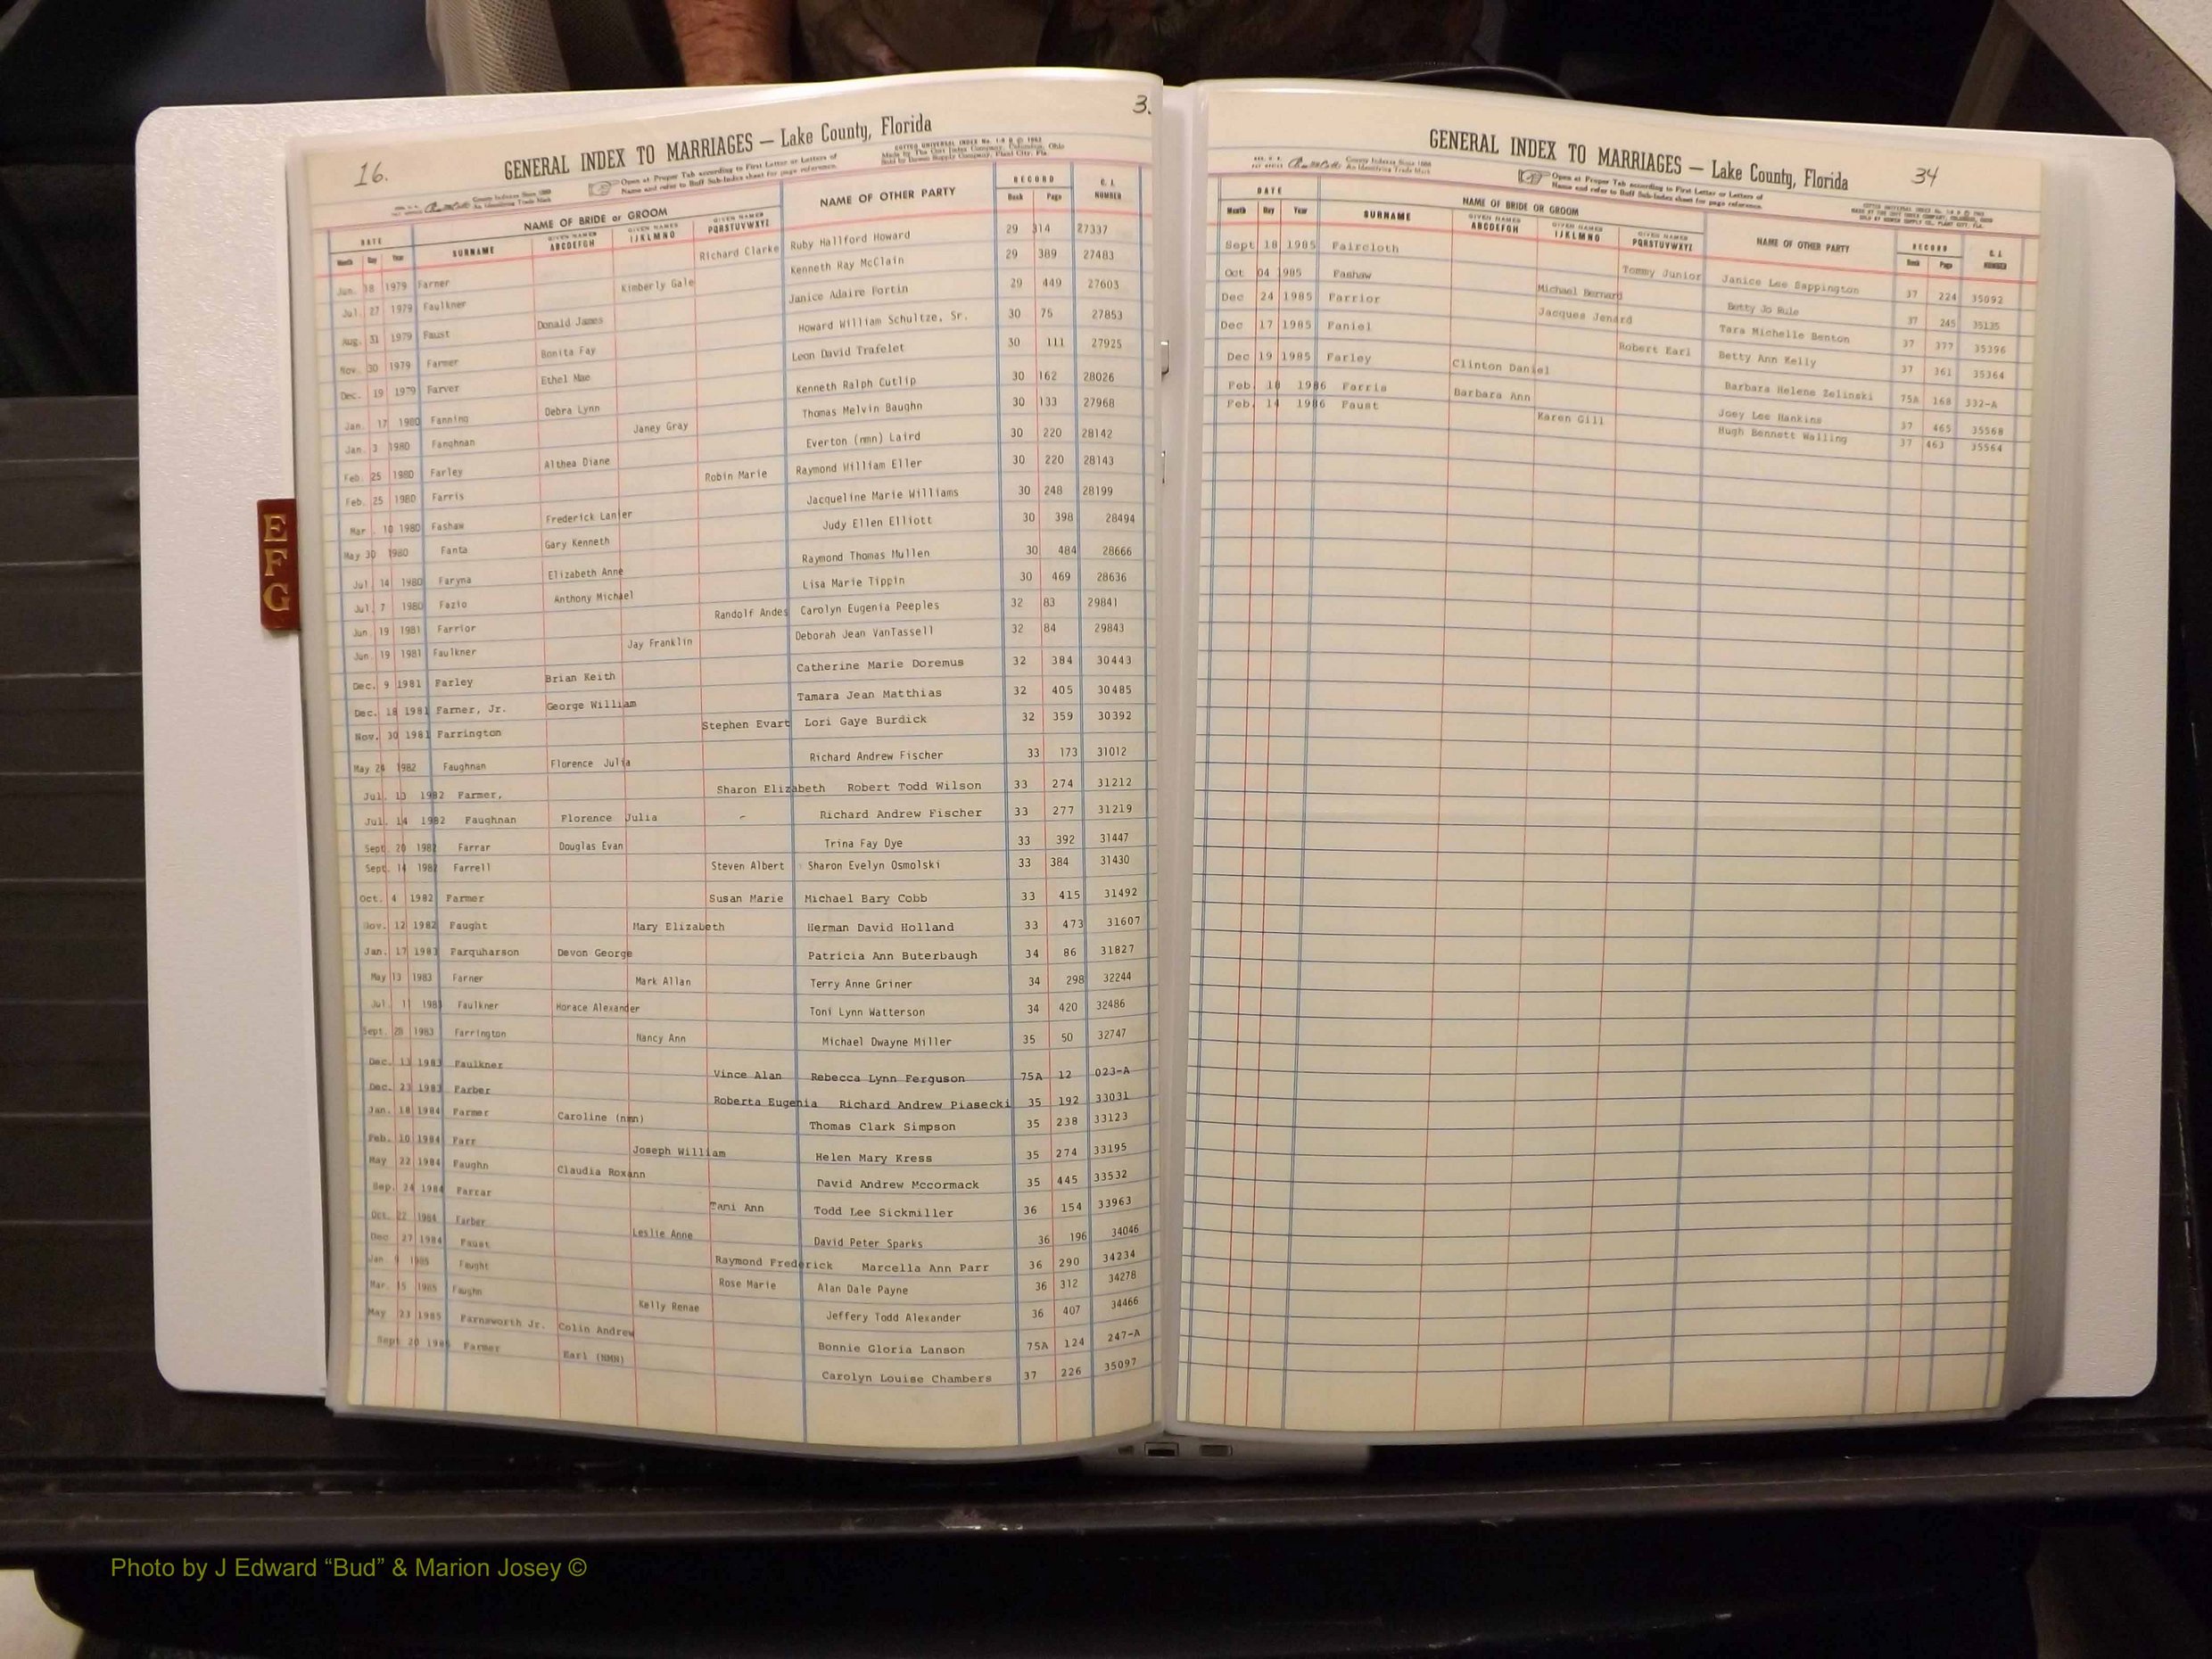 16.
3.
GENERAL INDEX TO MARRIAGES — Lake County, Florida
Open at Proper Tab according to First Letter or Letters of
Name and refer to Buff Sub-Index sheet for page reference.
DATE NAME OF BRIDE or GROOM NAME OF OTHER PARTY RECORD C. I. NUMBER
Month Day Year SURNAME GIVEN NAMES ABCDEFGH GIVEN NAMES IJKLMNO GIVEN NAMES PQRSTUVWXYZ Book Page
Jun. 18 1979 Farner Richard Clarke Ruby Hallford Howard 29 314 27337
Jul. 27 1979 Faulkner Kimberly Gale Kenneth Ray McClain 29 389 27483
Aug. 31 1979 Faust Donald James Janice Adaire Fortin 29 449 27603
Nov. 30 1979 Farmer Bonita Fay Howard William Schultze, Sr. 30 75 27853
Dec. 19 1979 Farver Ethel Mae Leon David Trafelet 30 111 27925
Jan. 17 1980 Fanning Debra Lynn Kenneth Ralph Cutlip 30 162 28026
Jan. 3 1980 Fanghnan Janey Gray Thomas Melvin Baughn 30 133 27968
Feb. 25 1980 Farley Althea Diane Everton (nmn) Laird 30 220 28142
Feb. 25 1980 Farris Robin Marie Raymond William Eller 30 220 28143
Mar. 10 1980 Fashaw Frederick Lanier Jacqueline Marie Williams 30 248 28199
May 30 1980 Fanta Gary Kenneth Judy Ellen Elliott 30 398 28494
Jul 14 1980 Faryna Elizabeth Anne Raymond Thomas Mullen 30 484 28666
Jul. 7 1980 Fazio Anthony Michael Lisa Marie Tippin 30 469 28636
Jun. 19 1981 Farrior Randolf Andes Carolyn Eugenia Peeples 32 83 29841
Jun. 19 1981 Faulkner Jay Franklin Deborah Jean VanTassell 32 84 29843
Dec. 9 1981 Farley Brian Keith Catherine Marie Doremus 32 384 30443
Dec. 18 1981 Farner, Jr. George William Tamara Jean Matthias 32 405 30485
Nov. 30 1981 Farrington Stephen Evart Lori Gaye Burdick 32 359 30392
May 24 1982 Faughnan Florence Julia Richard Andrew Fischer 33 173 31012
Jul. 13 1982 Farmer, Sharon Elizabeth Robert Todd Wilson 33 274 31212
Jul. 14 1982 Faughnan Florence Julia Richard Andrew Fischer 33 277 31219
Sept. 20 1982 Farrar Douglas Evan Trina Fay Dye 33 392 31447
Sept. 14 1982 Farrell Steven Albert Sharon Evelyn Osmolski 33 384 31430
Oct. 4 1982 Farmer Susan Marie Michael Bary Cobb 33 415 31492
Nov. 12 1982 Faught Mary Elizabeth Herman David Holland 33 473 31607
Jan. 17 1983 Farquharson Devon George Patricia Ann Buterbaugh 34 86 31827
May 13 1983 Farner Mark Allan Terry Anne Griner 34 298 32244
Jul. 1 198 Faulkner Horace Alexander Toni Lynn Watterson 34 420 32486
Sept. 28 1983 Farrington Nancy Ann Michael Dwayne Miller 35 50 32747
Dec. 13 1983 Faulkner Vince Alan Rebecca Lynn Ferguson 75A 12 023-A
Dec. 23 1983 Farber Roberta Eugenia Richard Andrew Piasecki 35 192 33031
Jan. 18 1984 Farmer Caroline (nmn) Thomas Clark Simpson 35 238 33123
Feb. 10 1984 Farr Joseph William Helen Mary Kress 35 274 33195
May 22 1984 Faughn Claudia Roxann David Andrew Mccormack 35 445 33532
Sep. 24 1984 Farrar Tani Ann Todd Lee Sickmiller 36 154 33963
Oct. 22 1984 Farber Leslie Anne David Peter Sparks 36 196 34046
Dec 27 1984 Faust Raymond Frederick Marcella Ann Parr 36 290 34234
Jan 9 1985 Faught Rose Marie Alan Dale Payne 36 312 34278
Mar. 15 1985 Faughn Kelly Renae Jeffery Todd Alexander 36 407 34466
May 23 1985 Farnsworth Jr. Colin Andrew Bonnie Gloria Lanson 75A 124 247-A
Sept 20 1985 Farmer Earl (NMN) Carolyn Louise Chambers 37 226 35097
E
F
G
GENERAL INDEX TO MARRIAGES — Lake County, Florida
34
Open at Proper Tab according to First Letter or Letters of
Name and refer to Buff Sub-Index sheet for page reference.
DATE NAME OF BRIDE OR GROOM NAME OF OTHER PARTY RECORD C. I. NUMBER
Month Day Year SURNAME GIVEN NAMES ABCDEFGH GIVEN NAMES IJKLMNO GIVEN NAMES PQRSTUVWXYZ Book Page
Sept 18 1985 Faircloth Tommy Junior Janice Lee Sappington 37 224 35092
Oct 04 1985 Fashaw Michael Bernard Betty Jo Rule 37 245 35135
Dec 24 1985 Farrior Jacques Jenard Tara Michelle Benton 37 377 35396
Dec 17 1985 Faniel Robert Earl Betty Ann Kelly 37 361 35364
Dec 19 1985 Farley Clinton Daniel Barbara Helene Zelinski 75A 168 332-A
Feb. 10 1986 Farris Barbara Ann Joey Lee Hankins 37 465 35568
Feb. 14 1986 Faust Karen Gill Hugh Bennett Walling 37 463 35564
Photo by J Edward “Bud” & Marion Josey ©